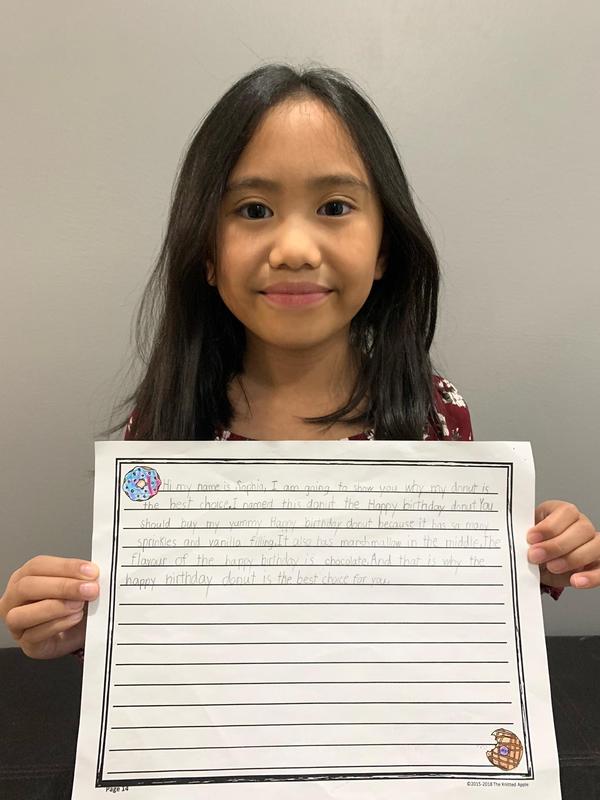 Hi my name is Sophia. I am going to show you why my donut is
the best choice. I named this donut the Happy birthday donut. You
should buy my yummy Happy birthday donut because it has so many
sprinkles and vanilla filling. It also has marshmallow in the middle. The
flavour of the happy birthday is chocolate. And that is why the
happy birthday donut is the best choice for you.
Page 14
©2015-2018 The Knitted Apple